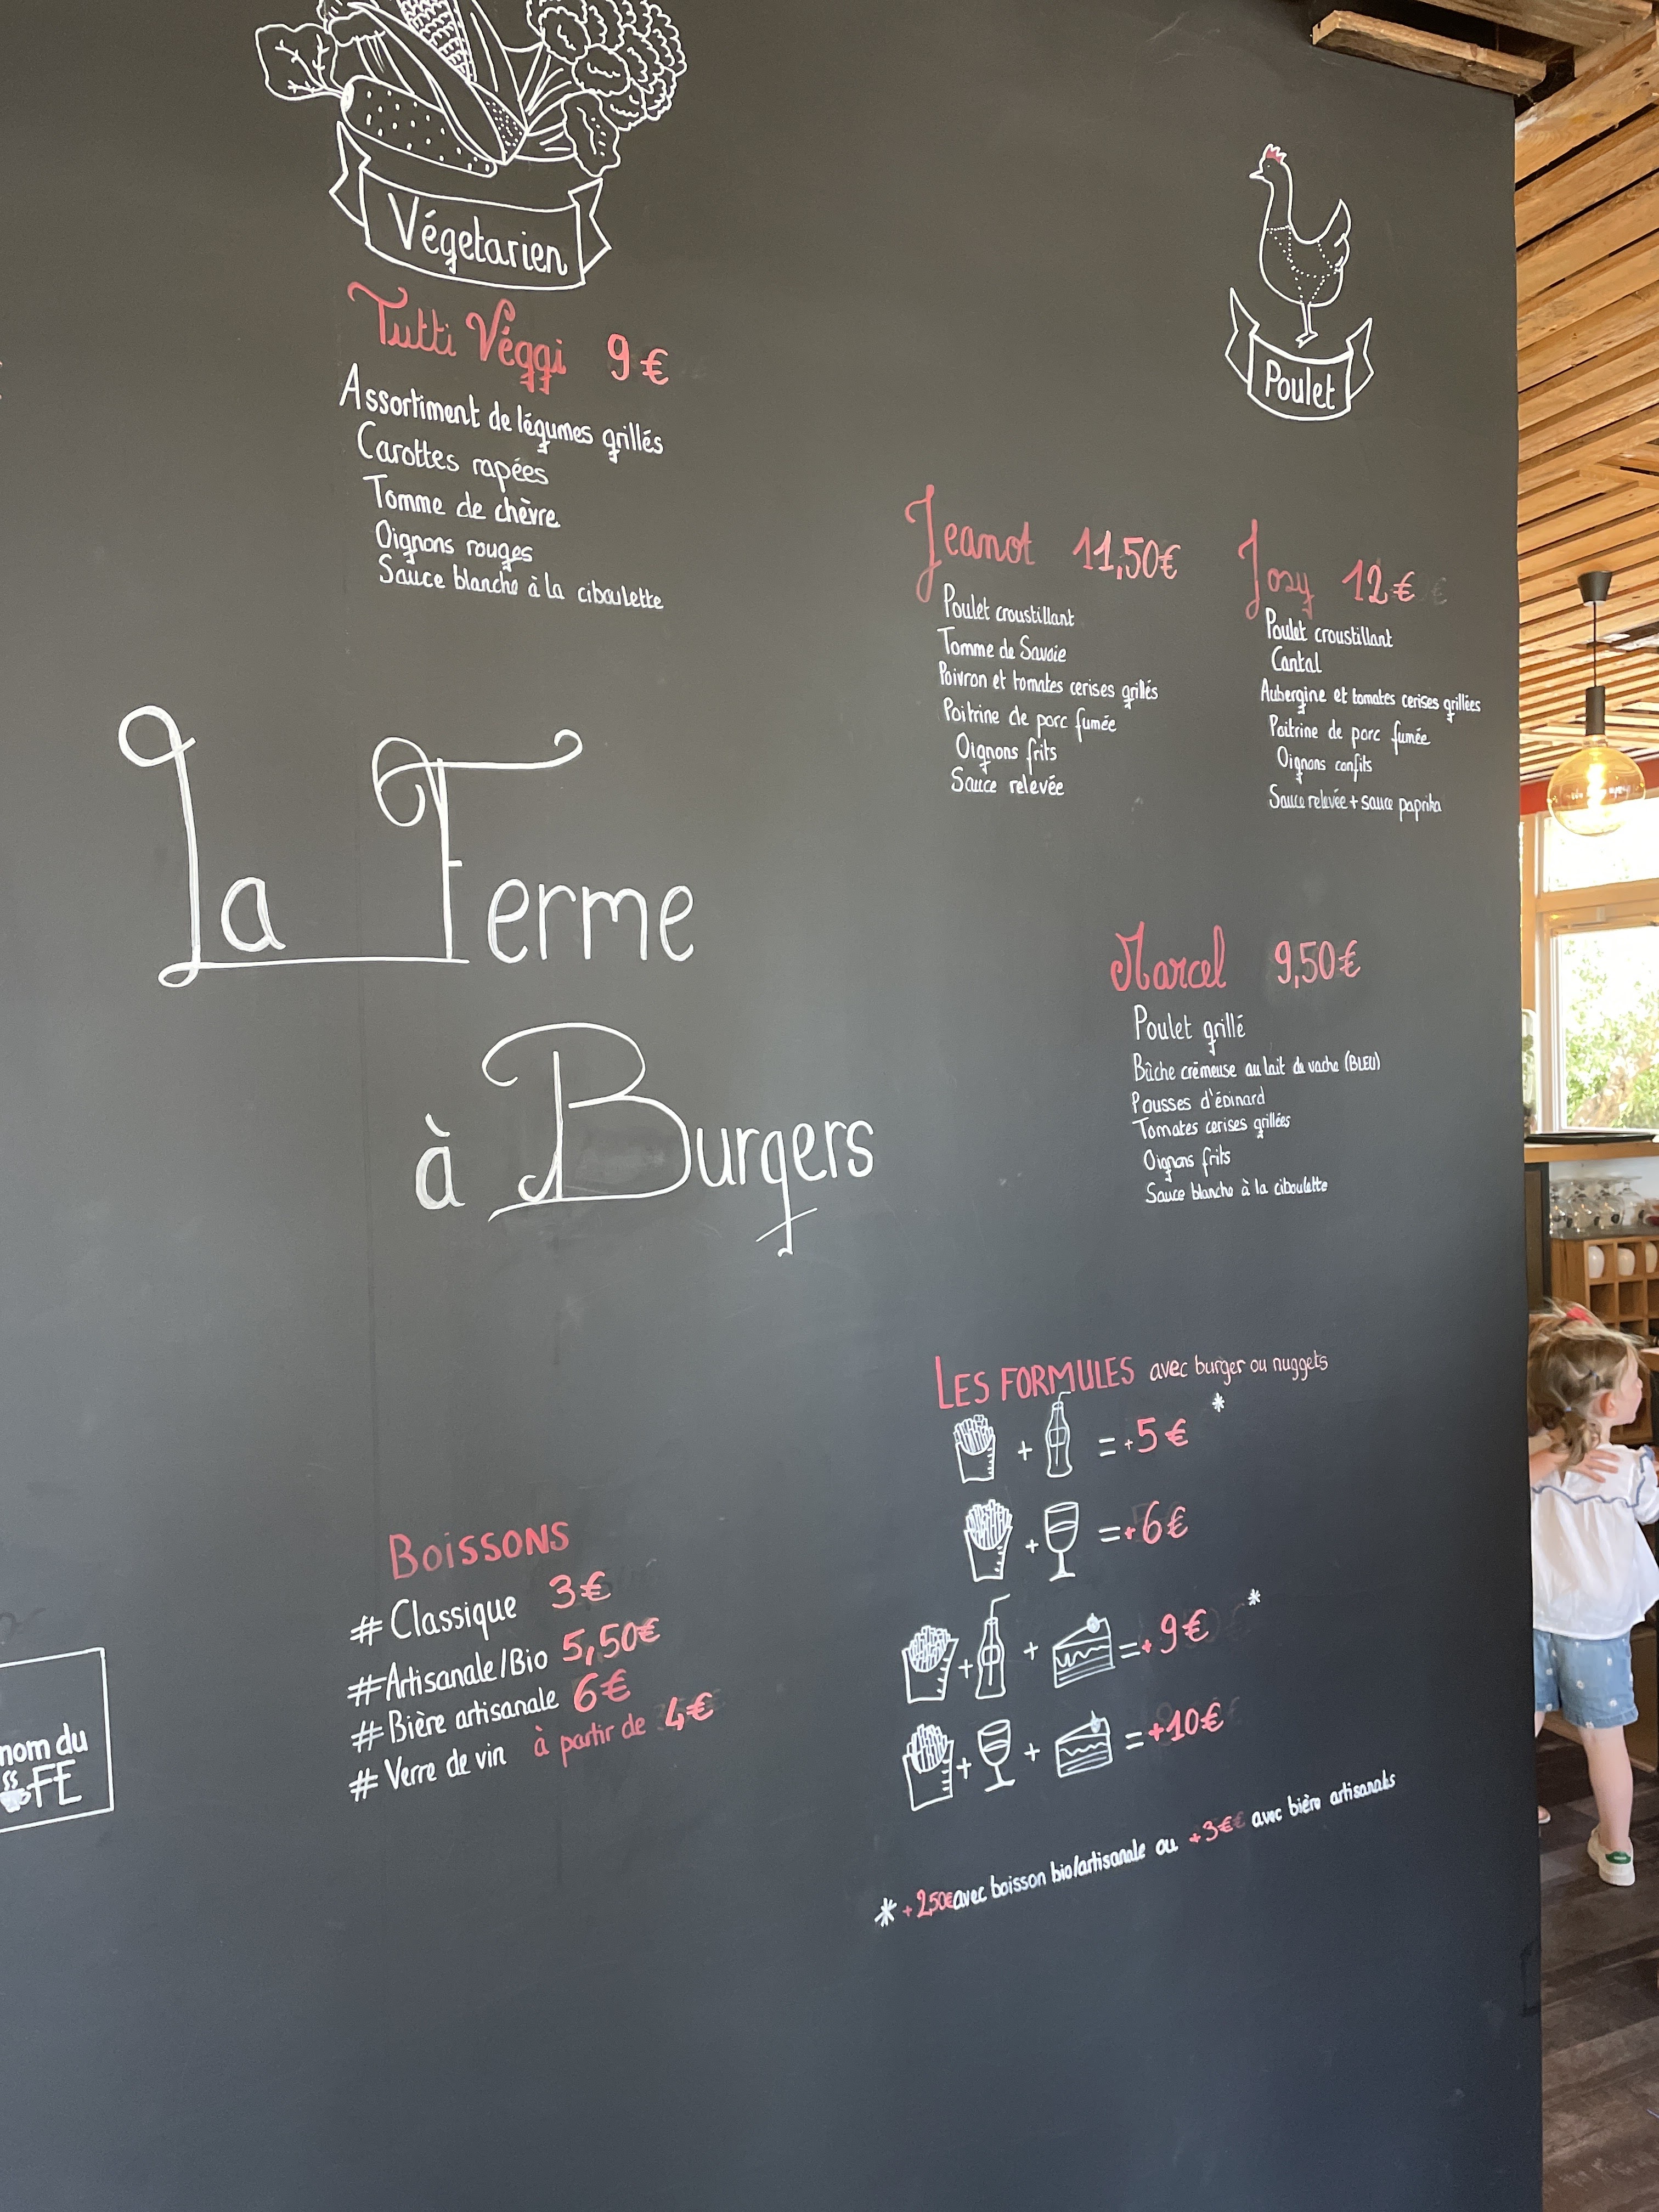 Végetarien
Tutti Véggi 9€
Assortiment de légumes grillés
Carottes rapées
Tomme de chèvre
Oignons rouges
Sauce blanche à la ciboulette
Poulet
Jeanot 11,50€
Poulet croustillant
Tomme de Savoie
Poivron et tomates cerises grillés
Poitrine de porc fumée
Oignons frits
Sauce relevée
Josy 12€
Poulet croustillant
Cantal
Aubergine et tomates cerises grillées
Poitrine de porc fumée
Oignons confits
Sauce relevée + sauce paprika
La Ferme
à Burgers
Marcel 9,50€
Poulet grillé
Bûche crémeuse au lait de vache (BLEU)
Pousses d'épinard
Tomates cerises grillées
Oignons frits
Sauce blanche à la ciboulette
LES FORMULES avec burger ou nuggets
+ = +5€ *
+ = +6€
+ + = +9€ *
+ + = +10€
* +2,50€ avec boisson bio/artisanale ou +3€ avec bière artisanale
BOISSONS
# Classique 3€
# Artisanale/Bio 5,50€
# Bière artisanale 6€
# Verre de vin à partir de 4€
nom du
FE